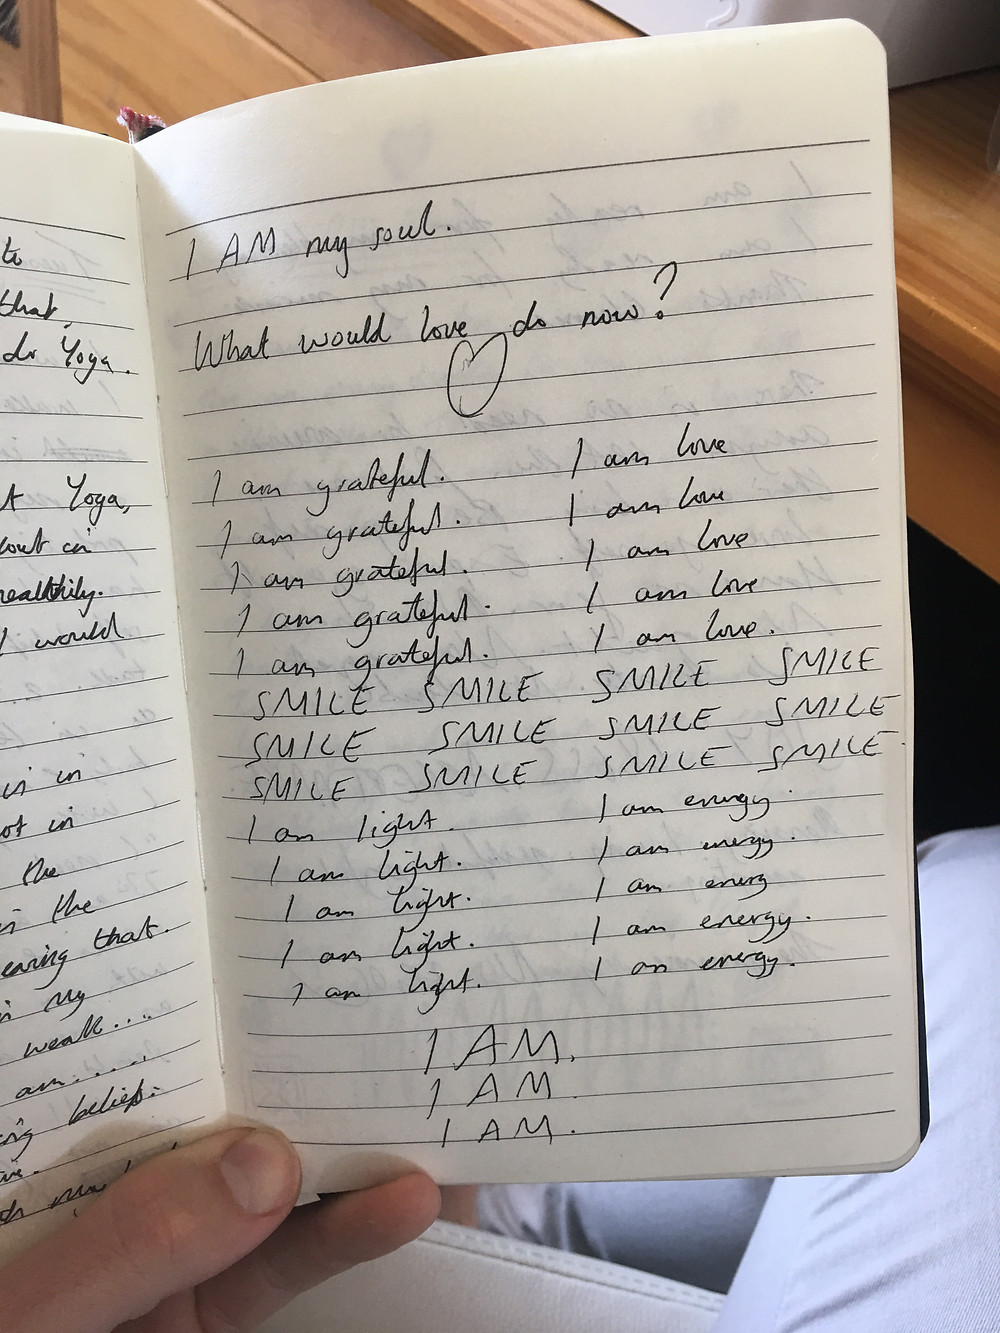 to
that,
do Yoga.
Yoga,
out in
healthily.
I would
is in
not in
the
in the
earing that.
in my
weak....
am.....
ing beliefs.
I AM my soul.
What would love do now?
I am grateful. I am love
I am grateful. I am love
I am grateful. I am love
I am grateful. I am love
I am grateful. I am love.
SMILE SMILE SMILE SMILE
SMILE SMILE SMILE SMILE
SMILE SMILE SMILE SMILE
I am light. I am energy.
I am light. I am energy.
I am light. I am energy
I am light. I am energy.
I am light. I am energy.
I AM.
I AM.
I AM.